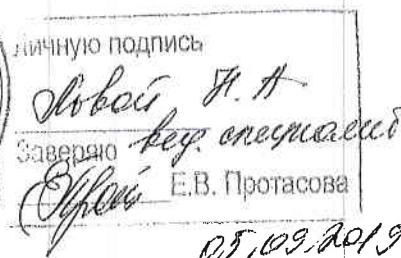 личную подпись
Ловой Н. А
Заверяю вед. специалист
Е.В. Протасова
05.09.2019